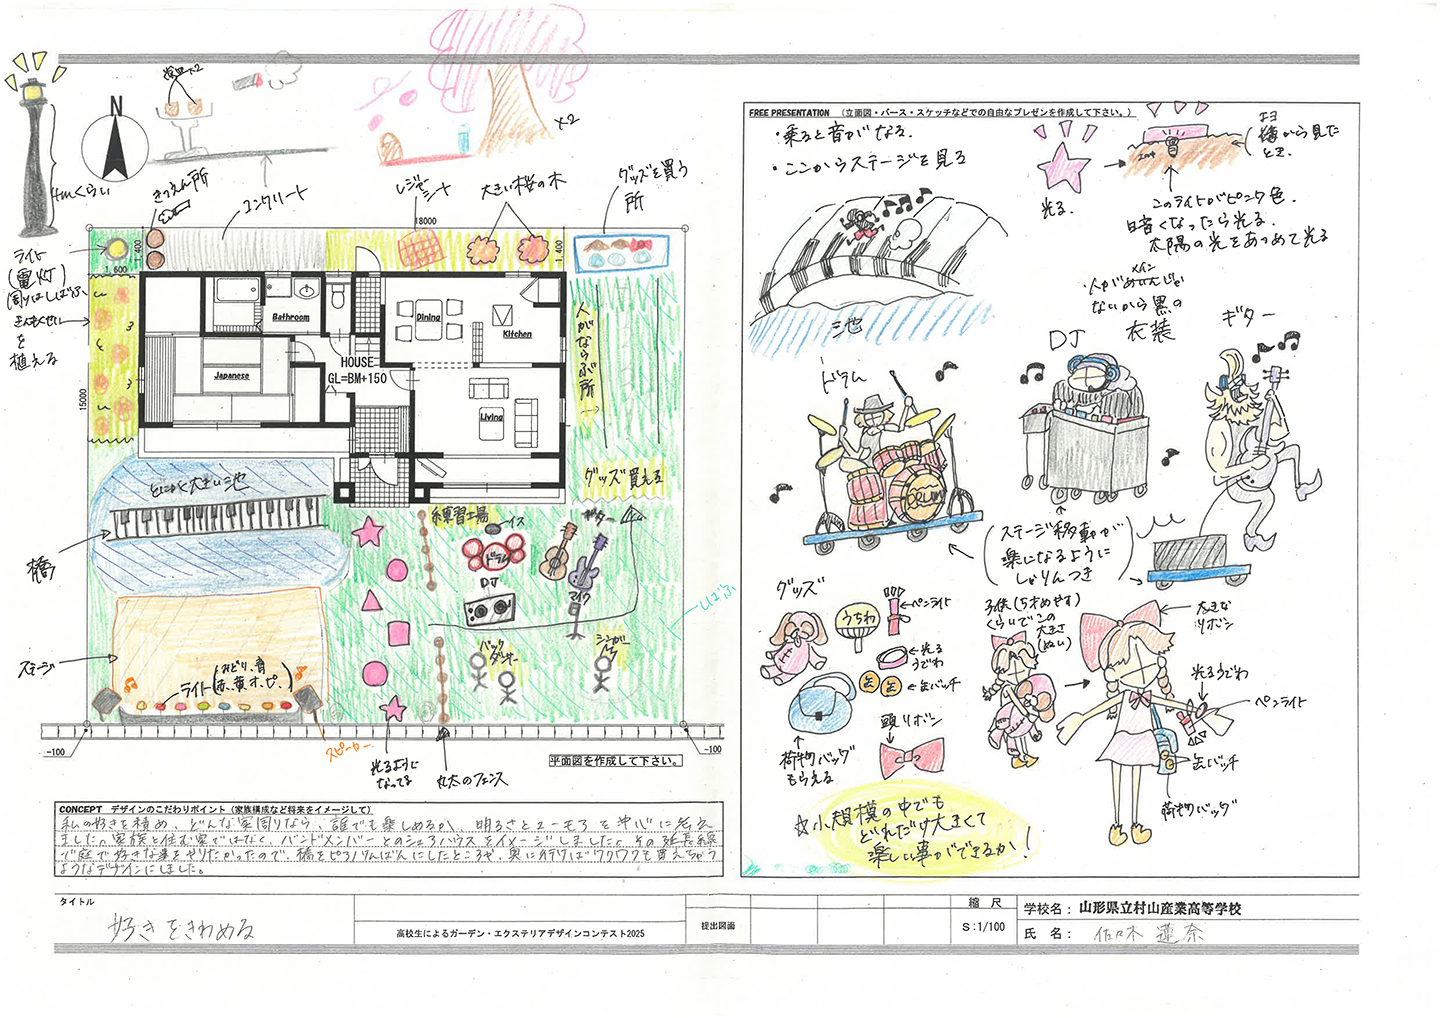 N
4mくらい
灰皿×2
きつえん所
コンクリート
レジャーシート
大きい桜の木
×2
グッズを買う所
18000
1,400
1,600
1,400
15000
ライト
(電灯)
周りはしばふ
きんもくせい
を
植える
Bathroom
Dining
Kitchen
Japanese
HOUSE
GL=BM+150
Living
人がならぶ所
グッズ買える
とにかく大きい池
橋
ステージ
ライト(みどり、青
赤、黄、オ、ピ)
スピーカー
練習場
イス
ギター
ドラム
DJ
マイク
バック
ダンサー
シンガー
しばふ
-100
-100
光るように
なってる
丸太のフェンス
平面図を作成して下さい。
CONCEPT デザインのこだわりポイント（家族構成など将来をイメージして）
私の好きを積め、どんな家周りなら、誰でも楽しめるか、明るさとユーモアを中心に考え
ました。家族と住む家ではなく、バンドメンバーとのシェアハウスをイメージしました。その延長線
で庭で好きな事をやりたかったので、橋をピアノけんばんにしたところや、奥に行けばワクワクも買えちゃう
ようなデザインにしました。
FREE PRESENTATION （立面図・パース・スケッチなどでの自由なプレゼンを作成して下さい。）
・乗ると音がなる.
・ここからステージを見る
池
光る.
から見た
とき.
このライトがピンク色.
暗くなったら光る.
太陽の光をあつめて光る
メイン
ないから黒の
衣装
ドラム
DRUM
DJ
ギター
ステージ移動が
楽になるように
しゃりんつき
グッズ
うちわ
ペンライト
光る
うでわ
缶バッチ
頭リボン
荷物バッグ
もらえる
子供(5才めやす)
くらいでこの
大きさ
(ぬい)
大きな
リボン
光るうでわ
ペンライト
缶バッチ
荷物バッグ
☆小規模の中でも
どれだけ大きくて
楽しい事ができるか!
タイトル
好きをきわめる
高校生によるガーデン・エクステリアデザインコンテスト2025
提出図面
縮 尺
S:1/100
学校名： 山形県立村山産業高等学校
氏 名： 佐々木 蓮奈